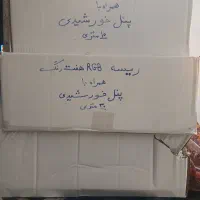 همراه با
پنل خورشیدی
متری
ریسه RGB هفت رنگ
همراه با
پنل خورشیدی
۳۰ متری